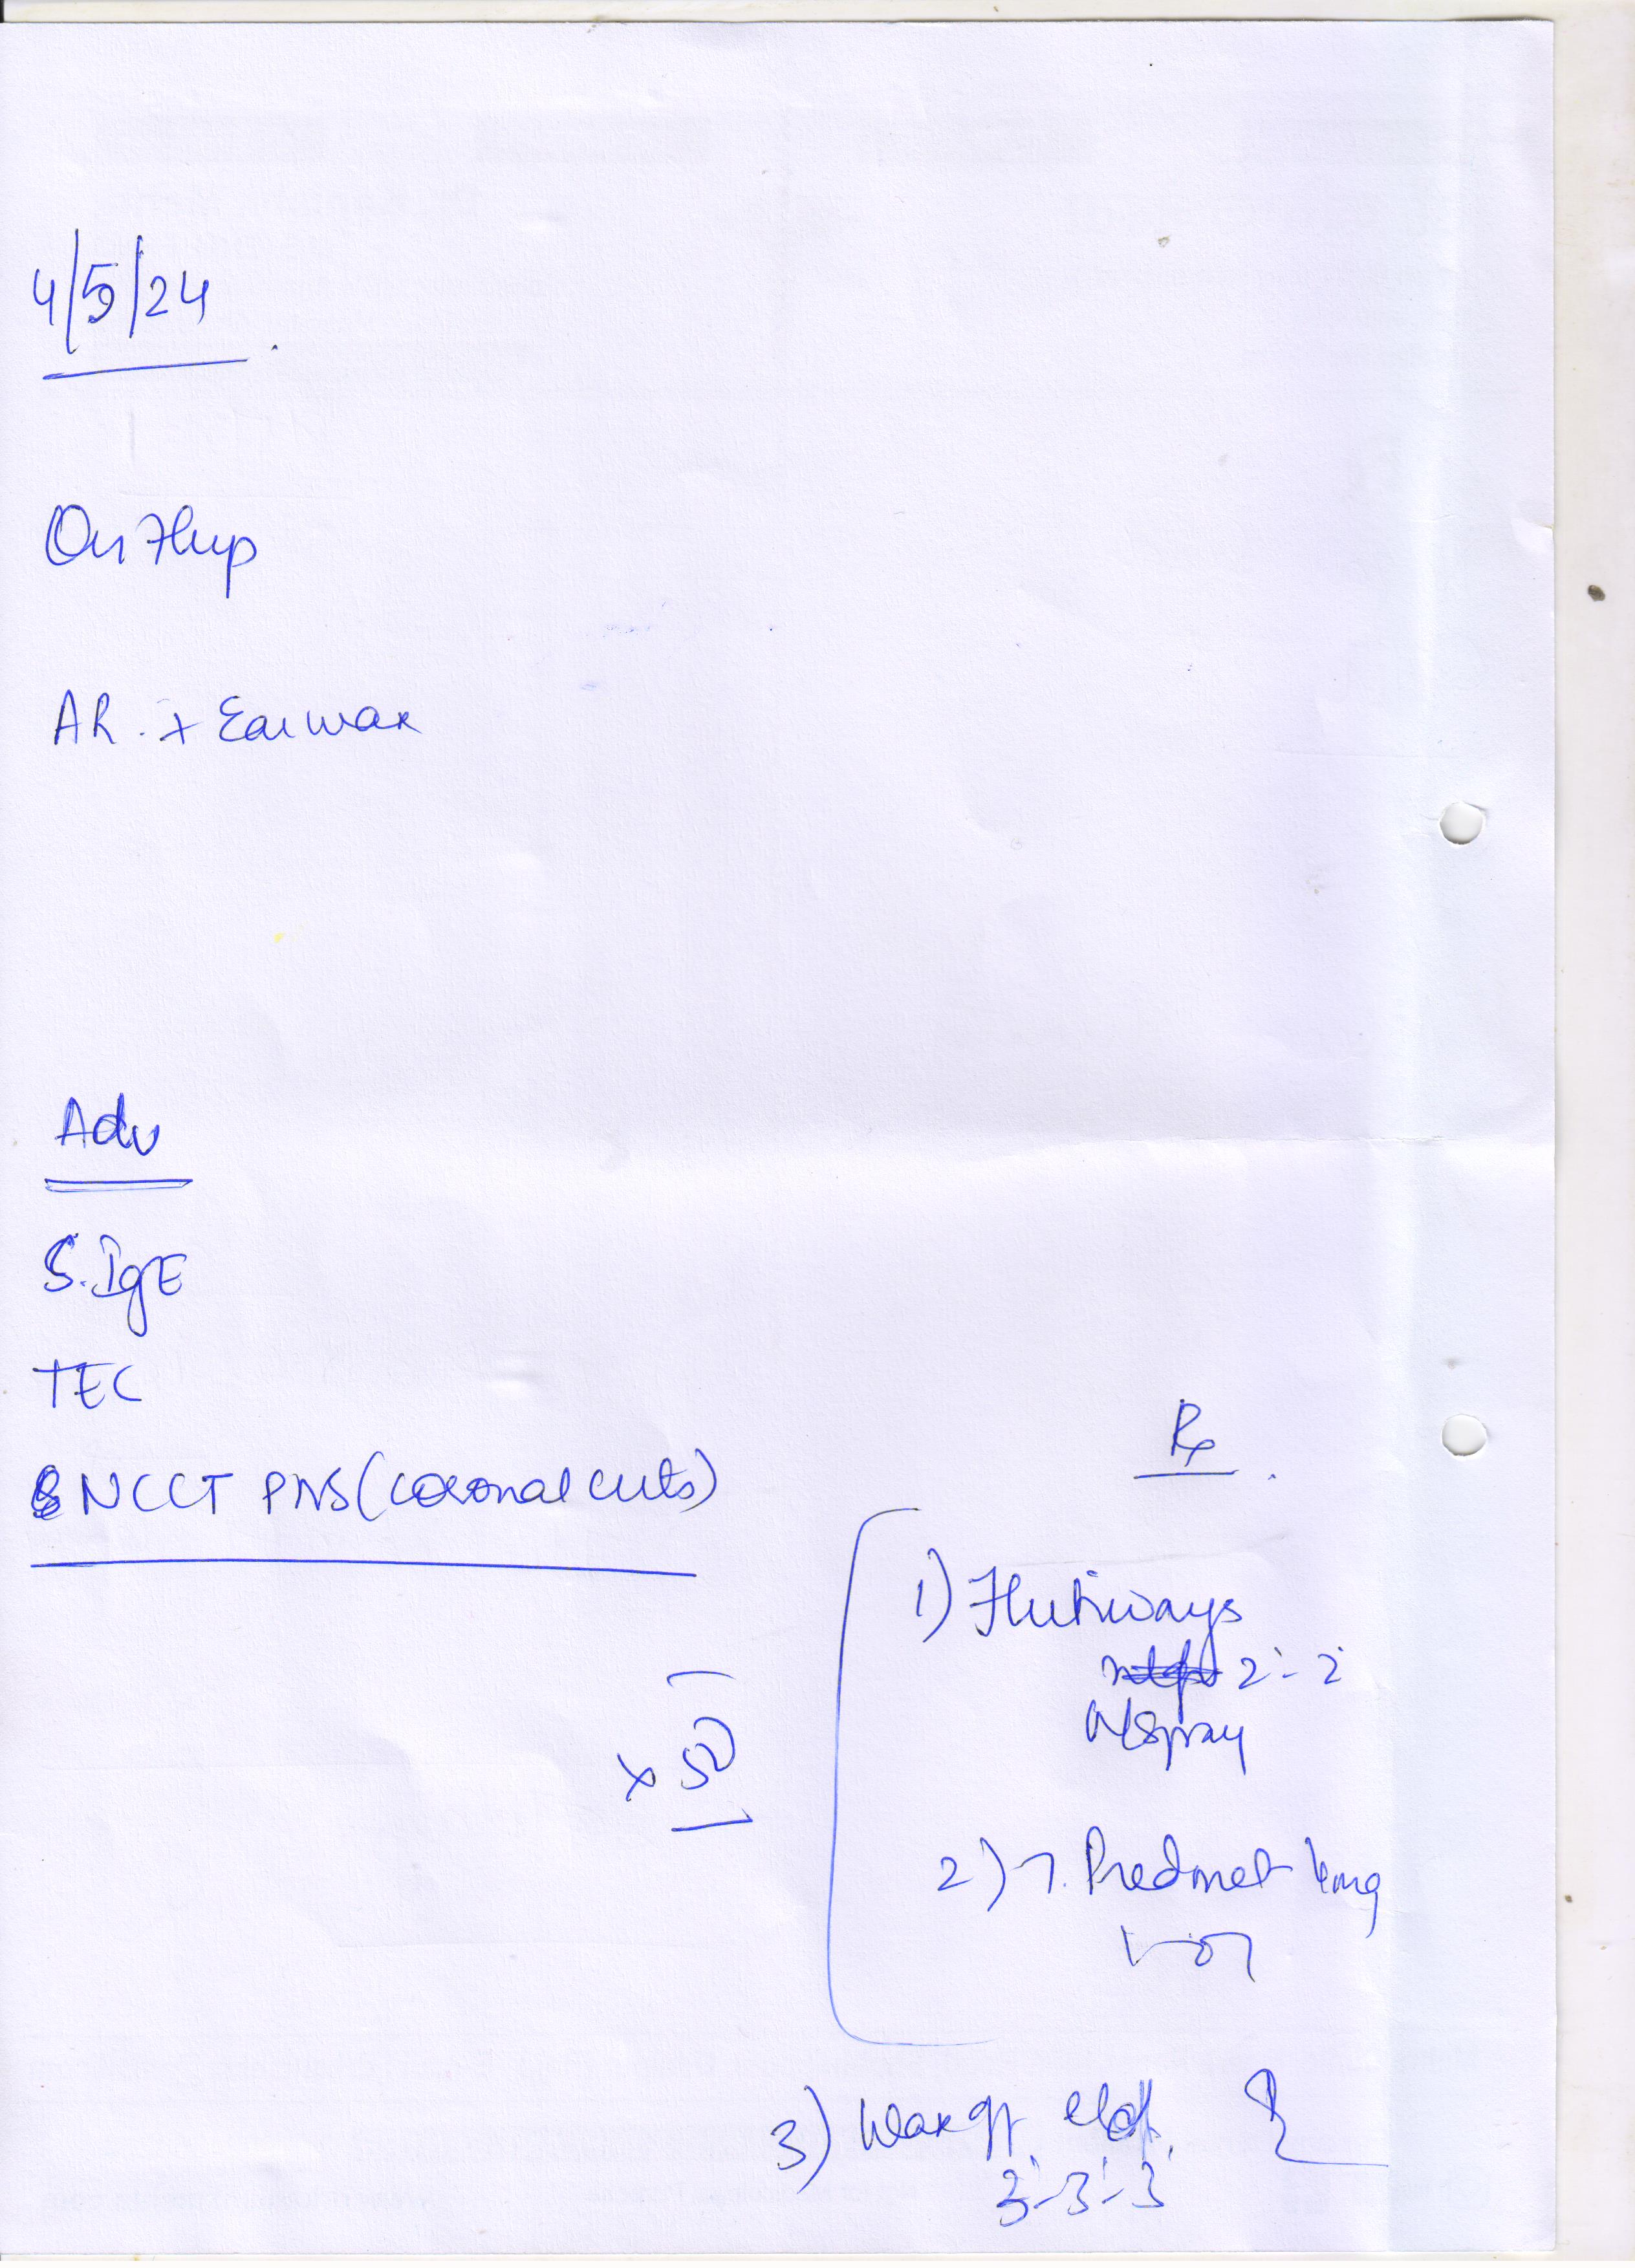 4/5/24
On Flup
AR. + Earwax
Adv
S. IgE
TEC
NCCT PNS (coronal cuts)
Rx
1) Flutiways
2 - 2
N/spray
x 5D
2) T. Predmet
3) Waxoff
3 - 3 - 3